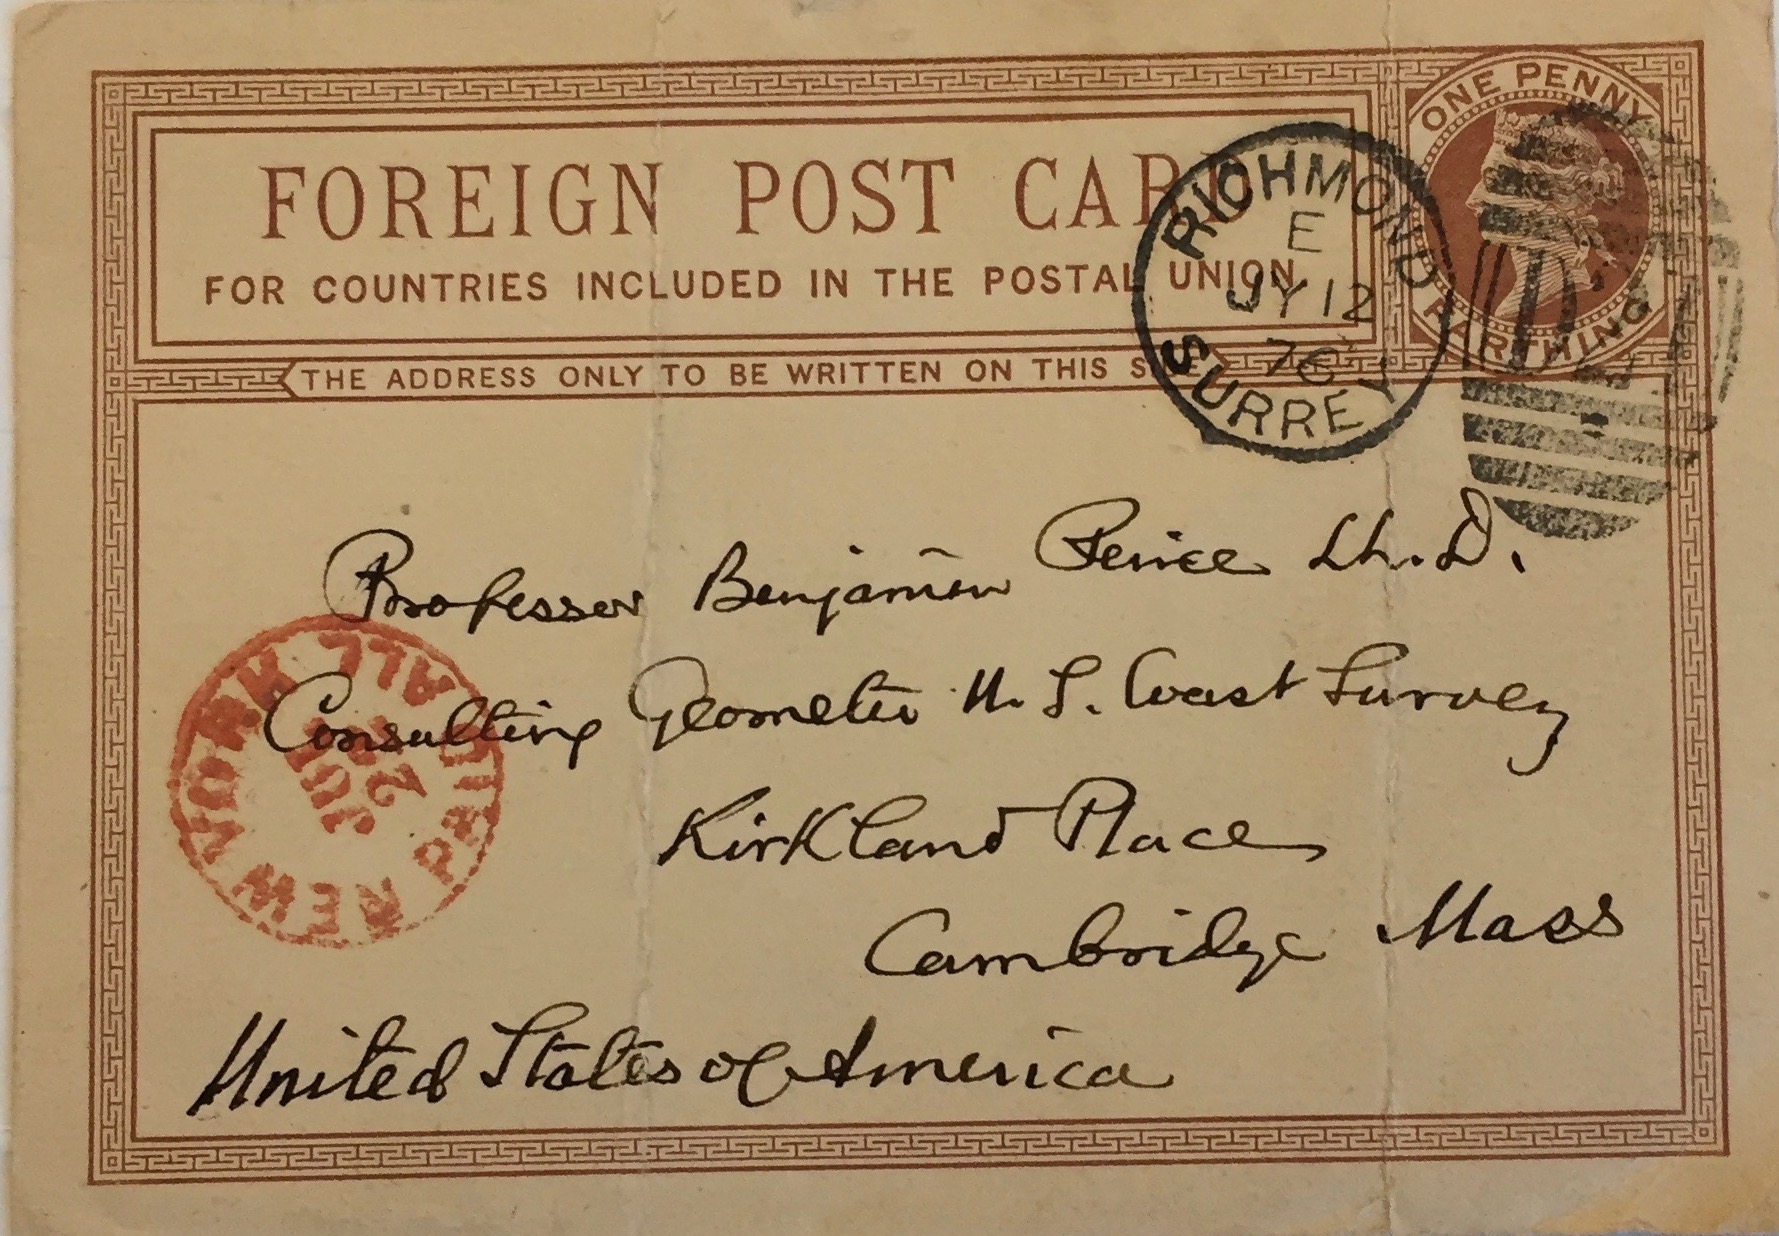 FOREIGN POST CARD
FOR COUNTRIES INCLUDED IN THE POSTAL UNION
THE ADDRESS ONLY TO BE WRITTEN ON THIS SIDE
ONE PENNY
FARTHING
RICHMOND
E
JY 12
76
SURREY
Professor Benjamin Peirce LL.D.
Consulting Geometer U.S. Coast Survey
Kirkland Place
Cambridge Mass
United States of America
NEW YORK
JUL
PAID ALL